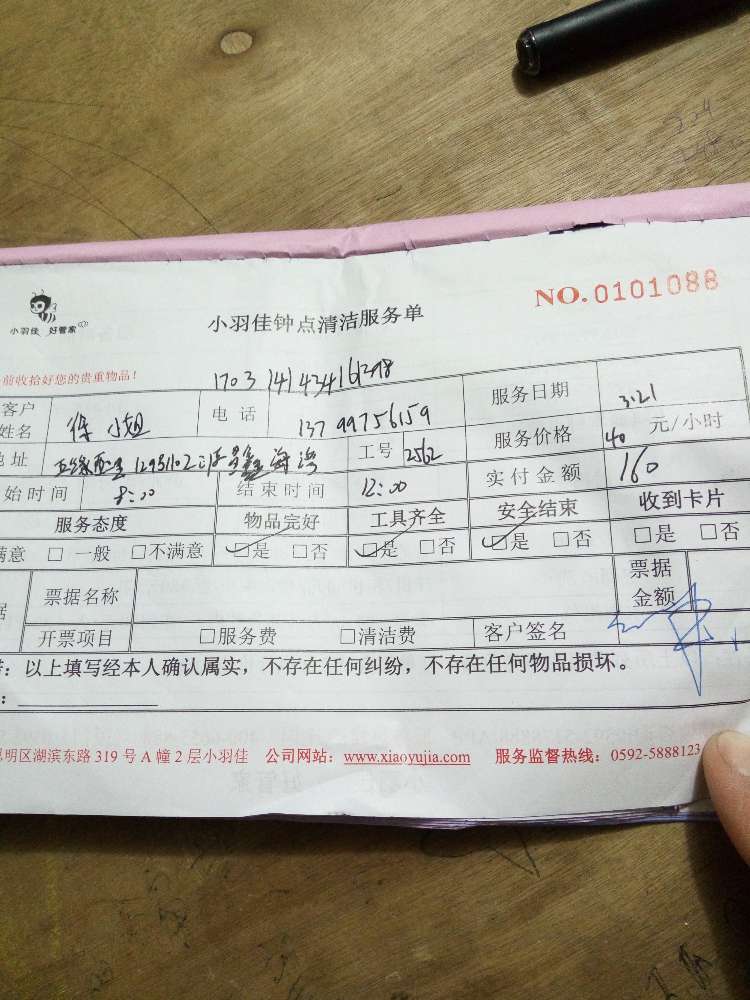 小羽佳 好管家
小羽佳钟点清洁服务单
NO. 0101088
前收拾好您的贵重物品！
1703 141434161248
客户姓名 徐小姐 电话 13799756159 服务日期 3.21
地址 工号 2562 服务价格 40 元/小时
始时间 8:00 结束时间 12:00 实付金额 160
服务态度 物品完好 工具齐全 安全结束 收到卡片
满意 □ 一般 □不满意 ☑是 □否 ☑是 □否 ☑是 □否 □是 □否
据 票据名称 票据金额
开票项目 □服务费 □清洁费 客户签名
：以上填写经本人确认属实，不存在任何纠纷，不存在任何物品损坏。
：
明区湖滨东路 319 号 A 幢 2 层小羽佳 公司网站：www.xiaoyujia.com 服务监督热线：0592-5888123